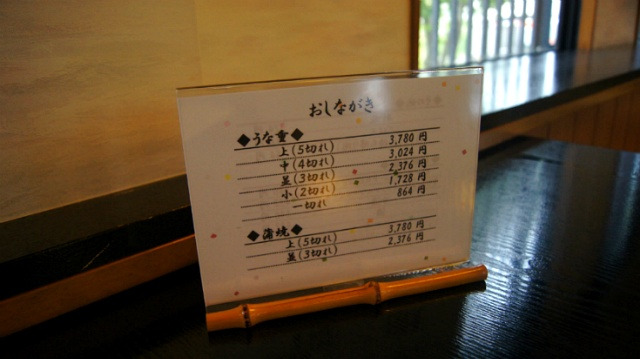 おしながき
◆うな重◆
上(5切れ) 3,780 円
中(4切れ) 3,024 円
並(3切れ) 2,376 円
小(2切れ) 1,728 円
一切れ 864 円
◆蒲焼◆
上(5切れ) 3,780 円
並(3切れ) 2,376 円